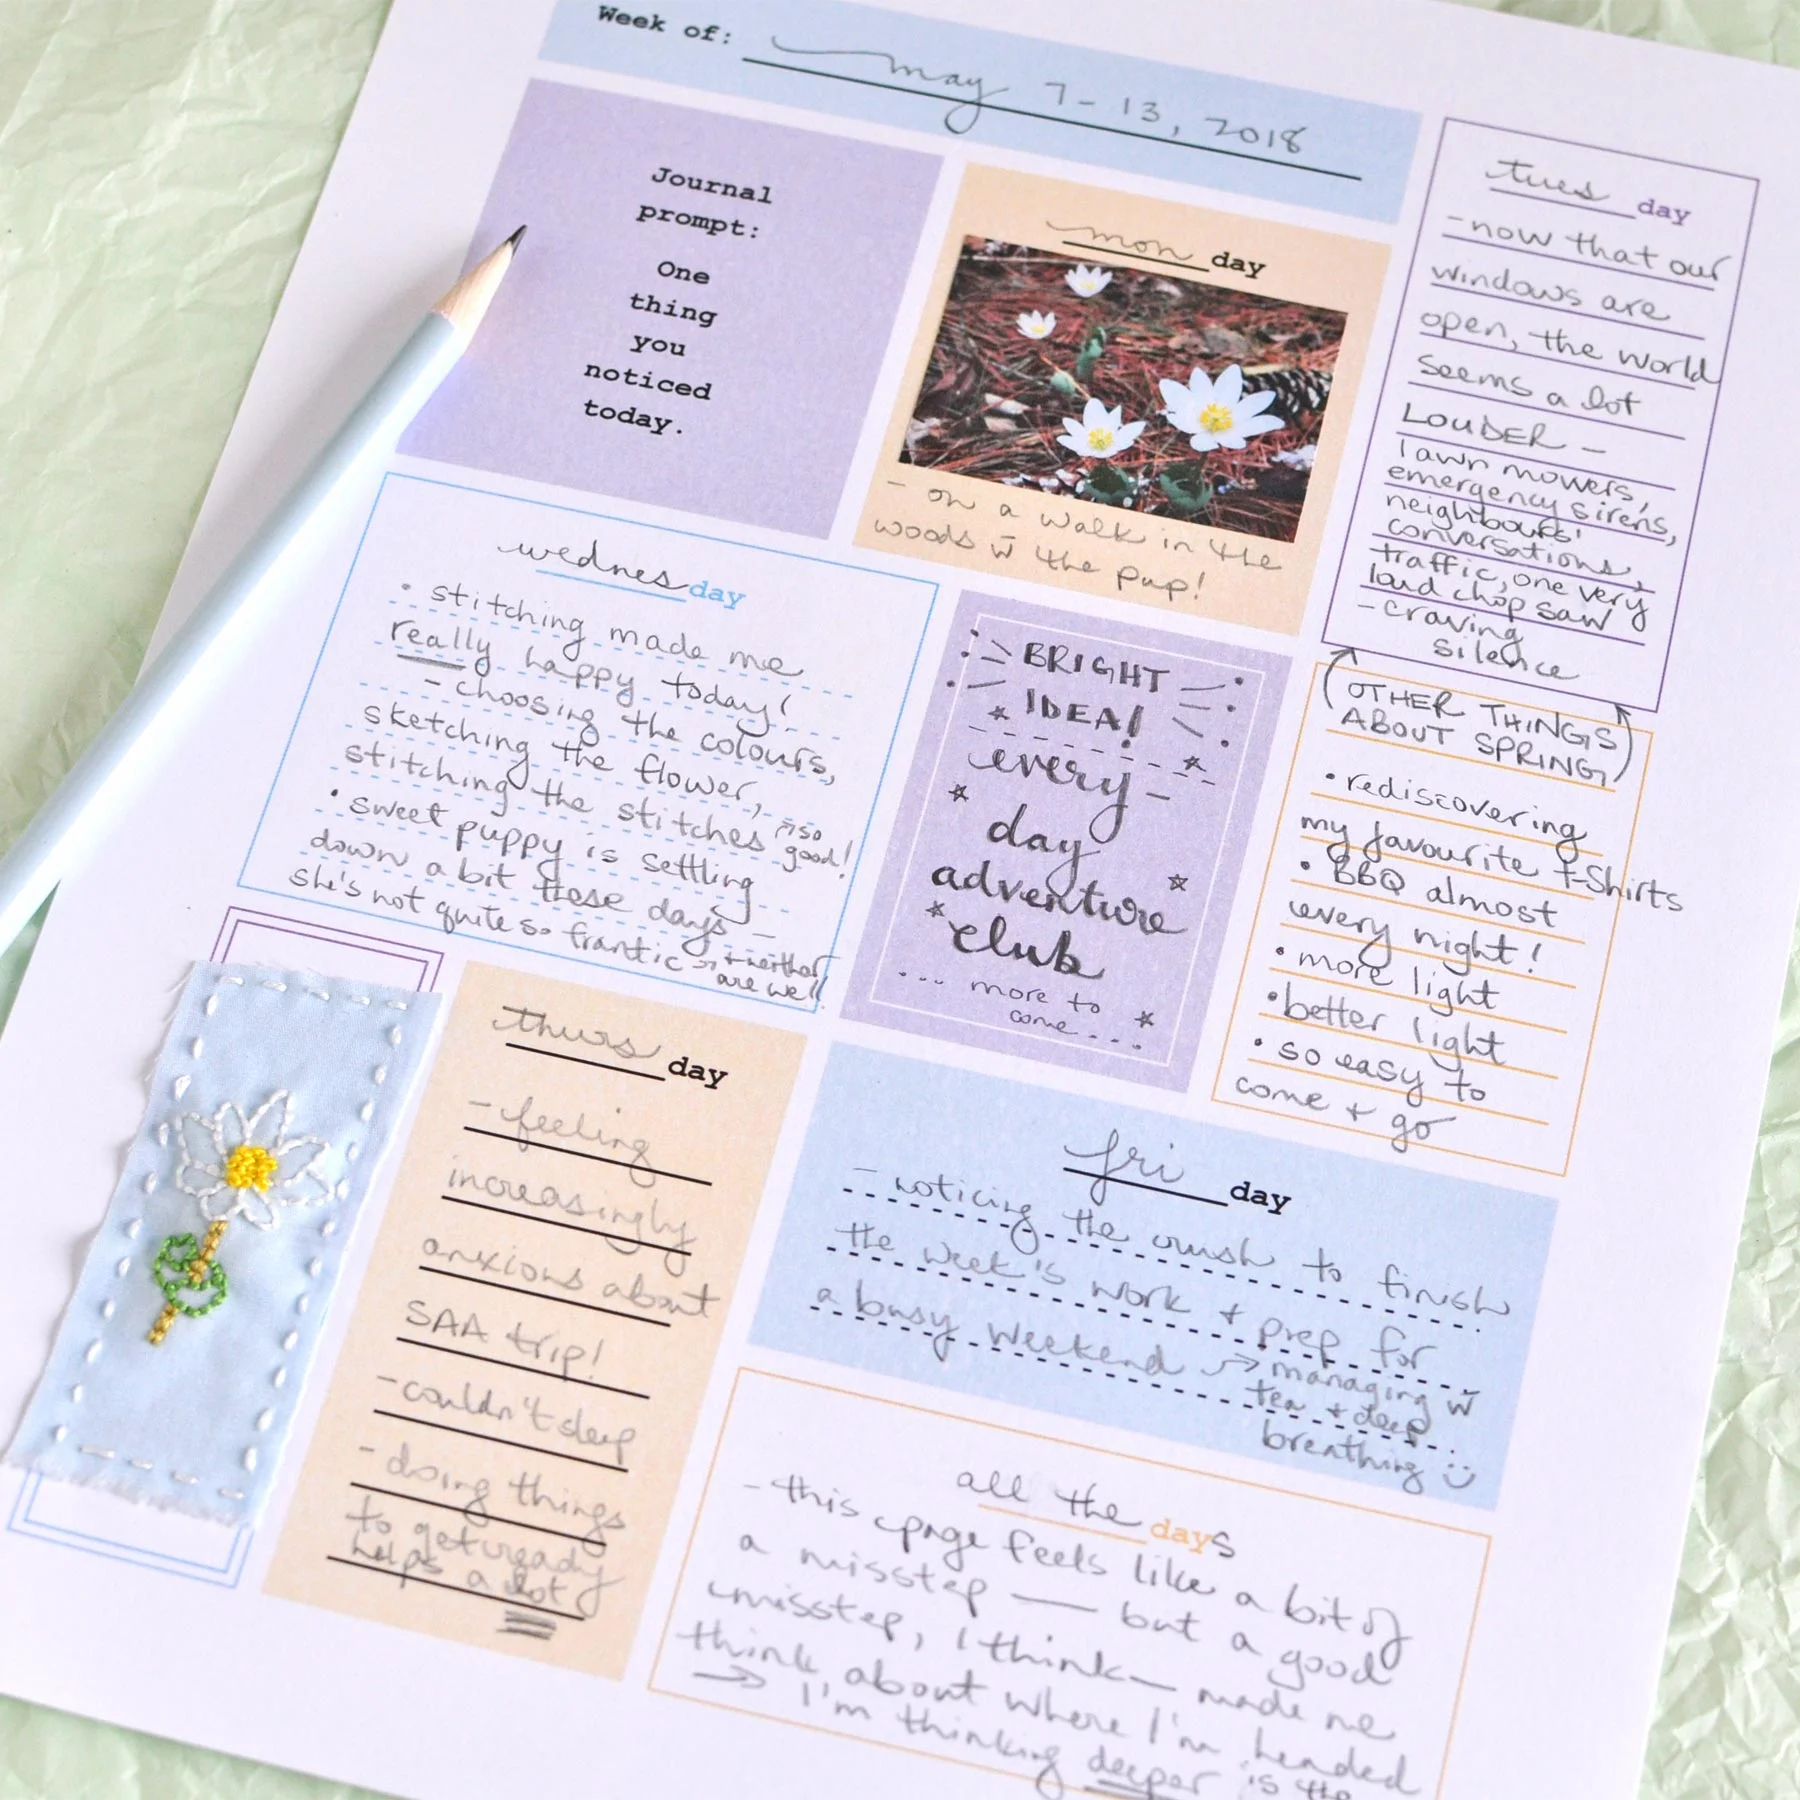 Week of: may 7-13, 2018
Journal
prompt:
One
thing
you
noticed
today.
mon day
- on a walk in the
woods w̄ the pup!
tues day
- now that our
windows are
open, the world
seems a lot
LOUDER -
lawn mowers,
emergency sirens,
neighbours'
conversations,
traffic, one very
loud chop saw
- craving
silence
wednesday
• stitching made me
really happy today!
- choosing the colours,
sketching the flower,
stitching the stitches → so
good!
• sweet puppy is settling
down a bit these days -
she's not quite so frantic → + neither
are we!!
BRIGHT
IDEA!
every-
day
adventure
club
... more to
come ...
OTHER THINGS
ABOUT SPRING
• rediscovering
my favourite t-shirts
• BBQ almost
every night!
• more light
• better light
• so easy to
come + go
thurs day
- feeling
increasingly
anxious about
SAA trip!
- couldn't sleep
- doing things
to get ready
helps a lot
fri day
- noticing the rush to finish
the week's work + prep for
a busy weekend → managing w̄
tea + deep
breathing
all the days
- this page feels like a bit of
a misstep — but a good
misstep, I think - made me
think about where I'm headed
→ I'm thinking deeper is the